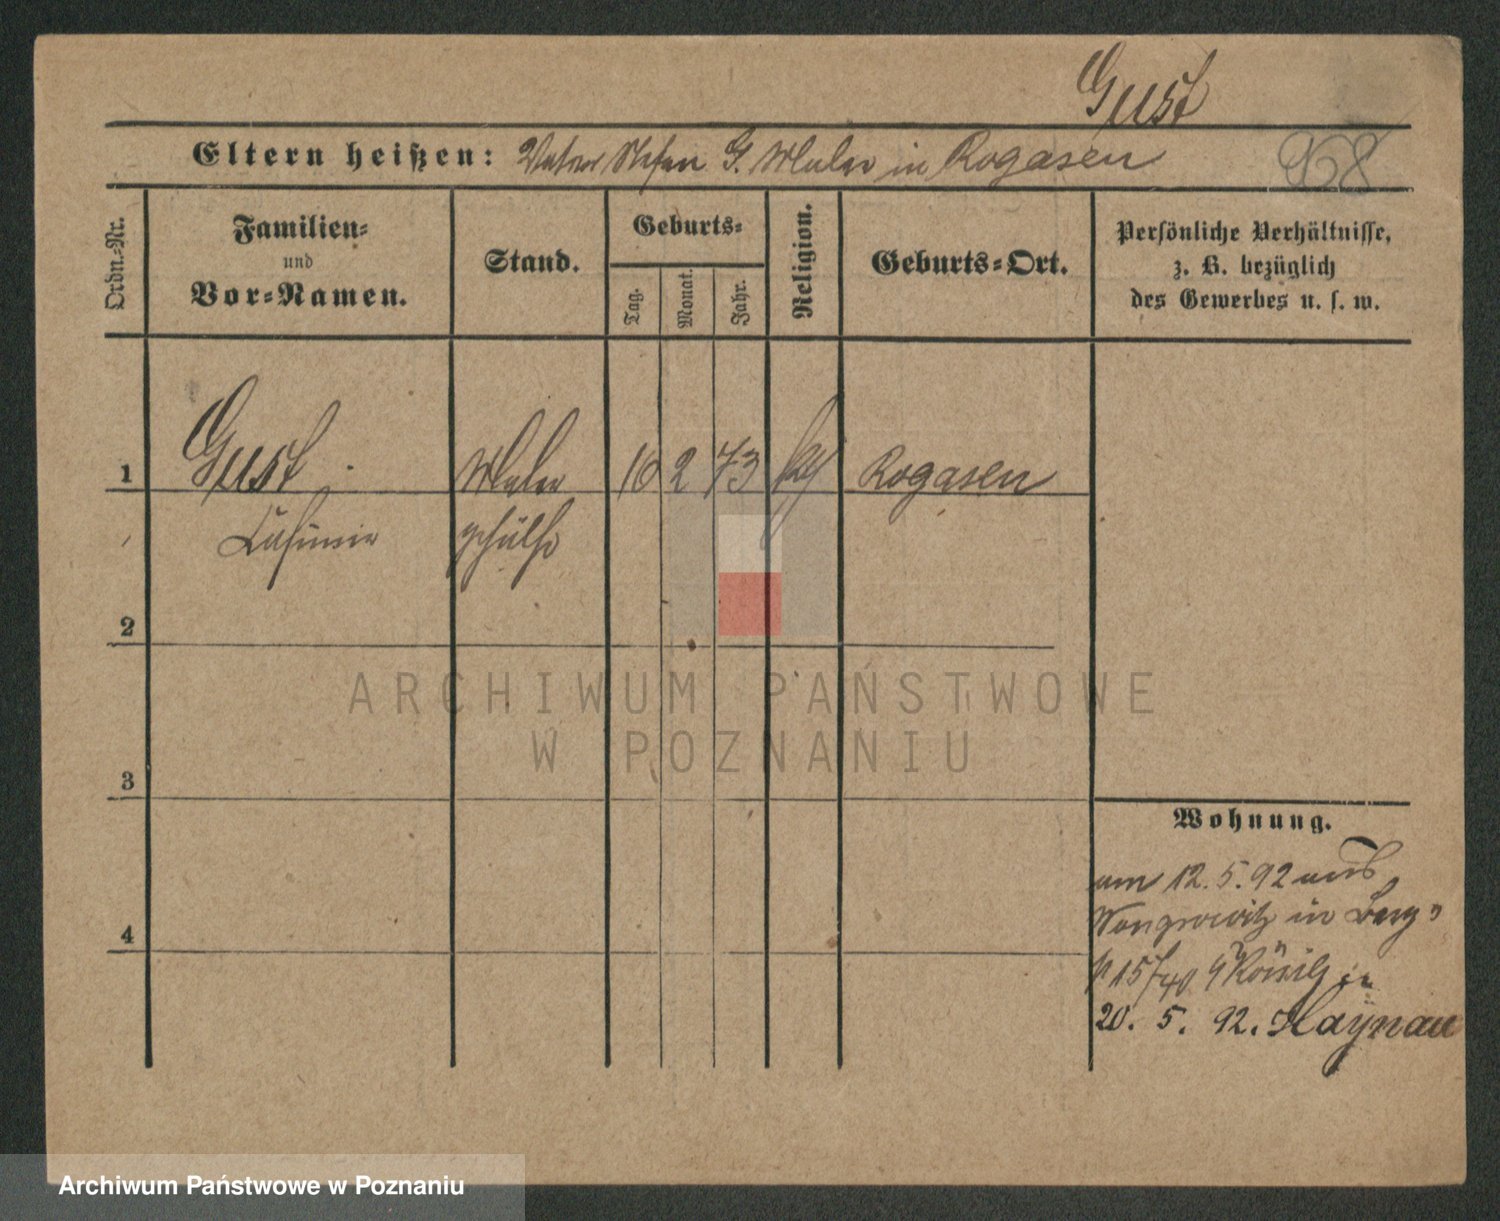 Gust
Eltern heißen: Vater Stefan G. Maler in Rogasen
958
Ordn.-Nr.
Familien-
und
Vor-Namen.
Stand.
Geburts-
Tag.
Monat.
Jahr.
Religion.
Geburts-Ort.
Persönliche Verhältnisse,
z. B. bezüglich
des Gewerbes u. s. w.
1 Gust Maler 10 2 73 kg Rogasen
Casimir gehülfe
2
3
4
Wohnung.
am 12.5.92 aus
Wongrowitz in Berg-
15/40 b König
20. 5. 92. Haynau
ARCHIWUM PAŃSTWOWE
W POZNANIU
Archiwum Państwowe w Poznaniu